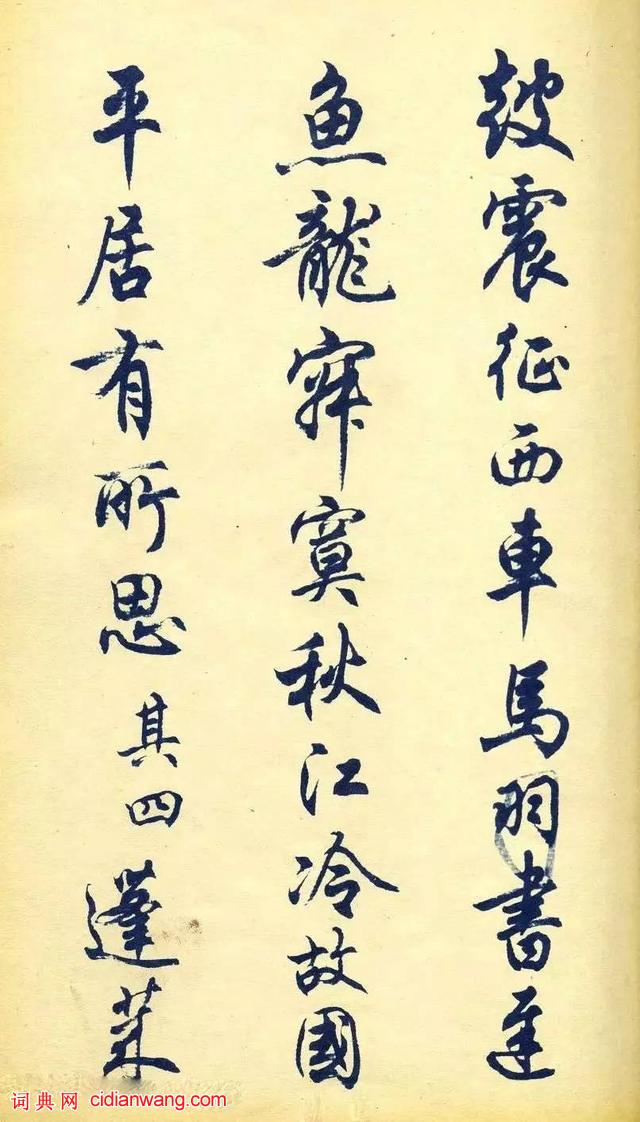 鼓震征西車馬羽書遲
魚龍寂寞秋江冷故國
平居有所思 其四 蓬萊
词典网 cidianwang.com